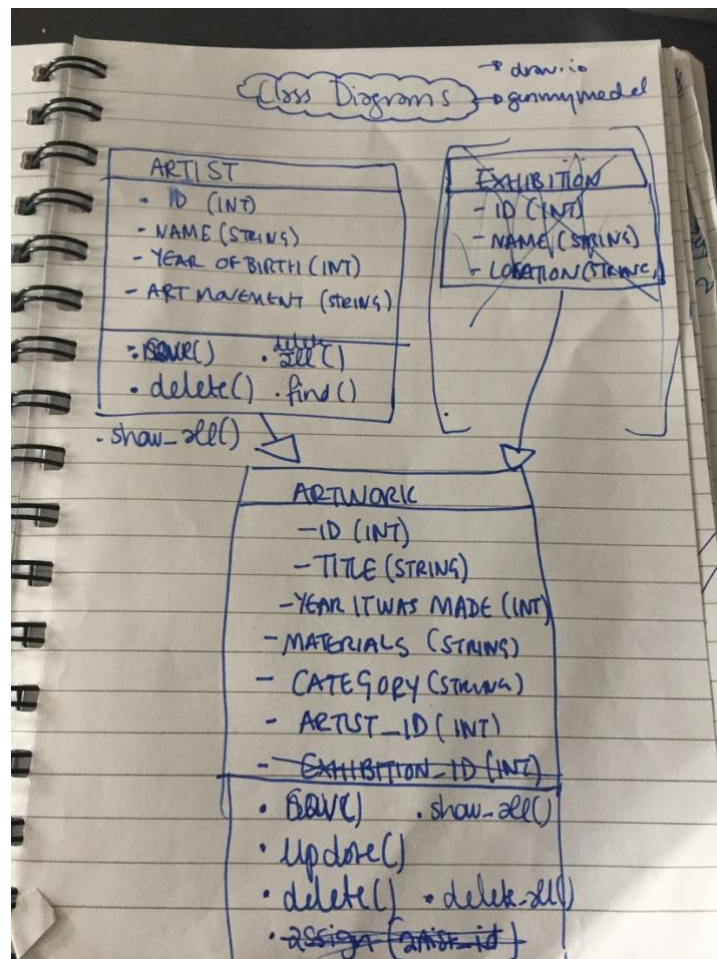 Class Diagrams
→ draw.io
→ genmymodel
ARTIST
- ID (INT)
- NAME (STRING)
- YEAR OF BIRTH (INT)
- ART MOVEMENT (STRING)
. save() . delete all()
. delete() . find()
. show_all()
EXHIBITION
- ID (INT)
- NAME (STRING)
- LOCATION (STRING)
ARTWORK
- ID (INT)
- TITLE (STRING)
- YEAR IT WAS MADE (INT)
- MATERIALS (STRING)
- CATEGORY (STRING)
- ARTIST_ID (INT)
- EXHIBITION_ID (INT)
. save() . show_all()
. update()
. delete() . delete_all()
. assign (artist_id)